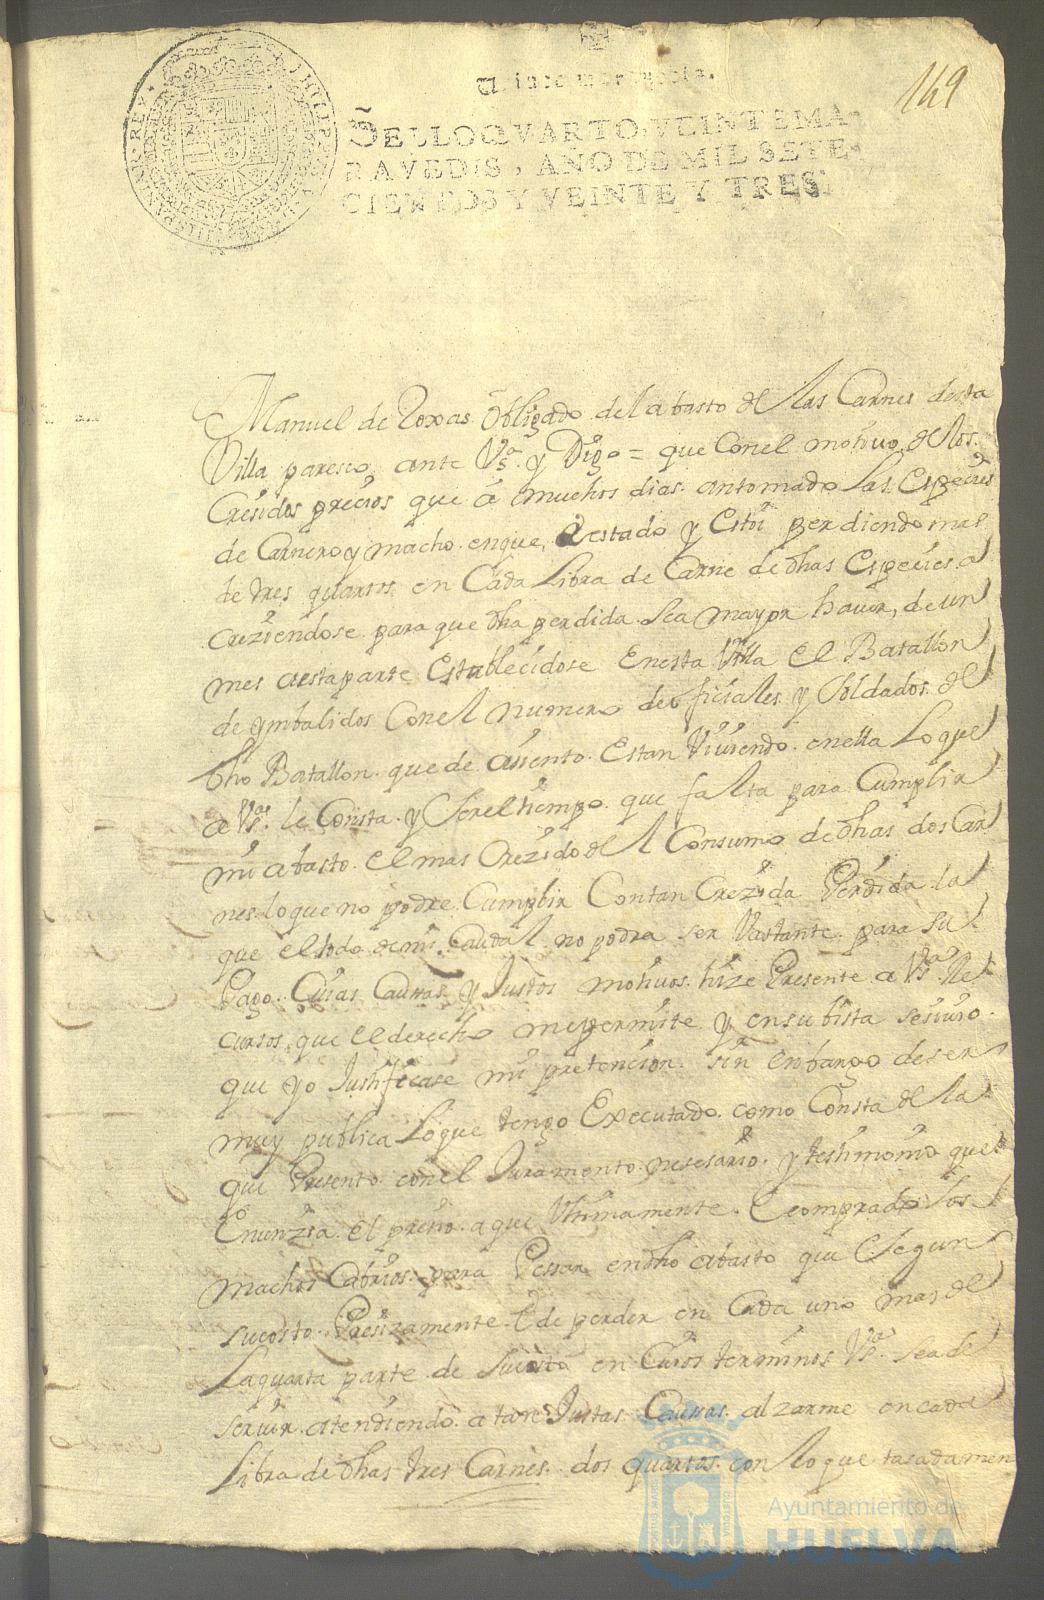 149
Veinte maravedis.
SELLO QVARTO, VEINTE MA-
RAVEDIS, AÑO DE MIL SETE-
CIENTOS Y VEINTE Y TRES.
Manuel de Roxas Obligado del abasto de las Carnes desta
Villa paresco ante Vs.ª y Digo = que Conel motivo de los
Cresidos precios que â muchos dias antomado las Especies
de Carnero y macho enque, a estado y Estoi perdiendo mas
de tres quartos en Cada Libra de Carne de dhas Especies a
creziendose para que dha perdida sea mayor haver, de un
mes aestaparte Establecidose Enesta Villa el Batallon
de ynbalidos Conel numero de oficiales y Soldados del
dho Batallon que de asiento Estan Viviendo enella Loque
a Vs.ª le Consta y Serel tiempo que falta para Cumplir
mi abasto el mas Crezido del Consumo de dhas dos Car
nes loque no podre Cumplir Contan Crezida Perdida la
que el todo de mi Caudal no podra ser Vastante para su
Pago Cuias Caussas y Justos motivos hize Presente a Vs.ª Re
cursos que el derecho mepermite y ensubista sesivio
que yo Justificase mi pretencion sin enbargo de ser
muy publica Loque tengo Executado como Consta de la
que Presento conel Juramento nesesario y testimonio que
Enunzia el precio a que Vltimamente E comprado los
machos Cabrios para Pessar endho abasto que Segun
sucosto Presizamente E de perder en Cada uno mas de
Laquarta parte de sucosto en Cuios terminos Vs.ª sea de
servir atendiendo a tan Justas Caussas alzarme encada
Libra de dhas tres Carnes dos quartos con lo que tasadamen
Ayuntamiento de
HUELVA